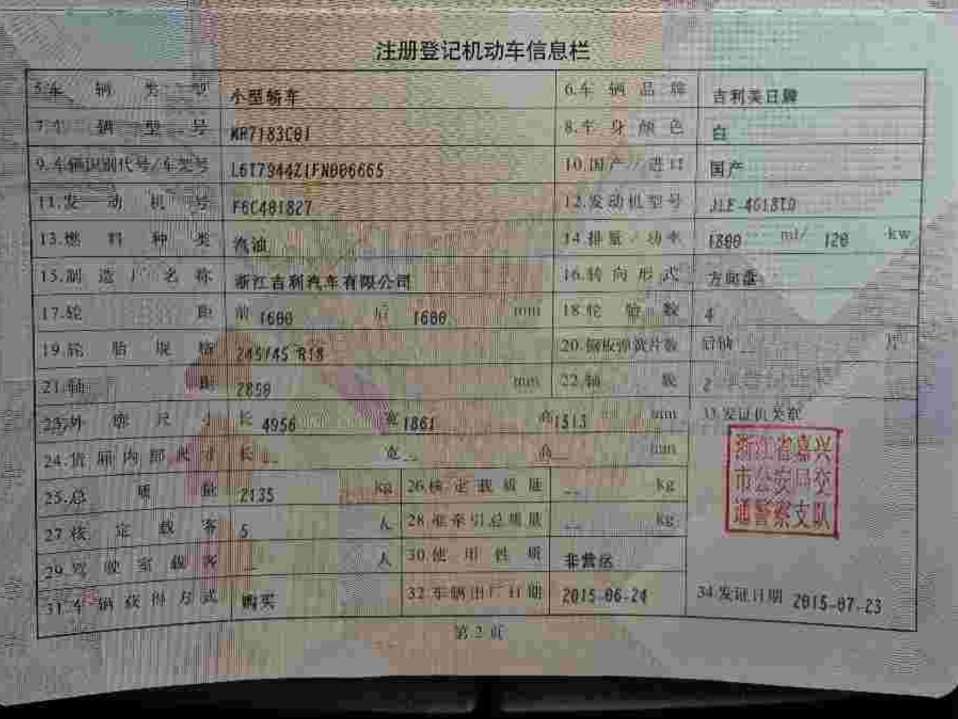 注册登记机动车信息栏
5.车辆类型 小型轿车 6.车辆品牌 吉利美日牌
7.车辆型号 MR7183C01 8.车身颜色 白
9.车辆识别代号/车架号 L6T7944Z1FN006665 10.国产/进口 国产
11.发动机号 F6C401827 12.发动机型号 JLE-4G18TD
13.燃料种类 汽油 14.排量/功率 1800 ml/ 120 kw
15.制造厂名称 浙江吉利汽车有限公司 16.转向形式 方向盘
17.轮距 前 1600 后 1600 mm 18.轮胎数 4
19.轮胎规格 245/45 R18 20.钢板弹簧片数 后轴 -- 片
21.轴距 2850 mm 22.轴数 2
23.外廓尺寸 长 4956 宽 1861 高 1513 mm 33.发证机关章
24.货厢内部尺寸 长 -- 宽 -- 高 -- mm
浙江省嘉兴
市公安局交
通警察支队
25.总质量 2135 kg 26.核定载质量 -- kg
27.核定载客 5 人 28.准牵引总质量 -- kg
29.驾驶室载客 -- 人 30.使用性质 非营运
31.车辆获得方式 购买 32.车辆出厂日期 2015-06-24 34.发证日期 2015-07-23
第2页